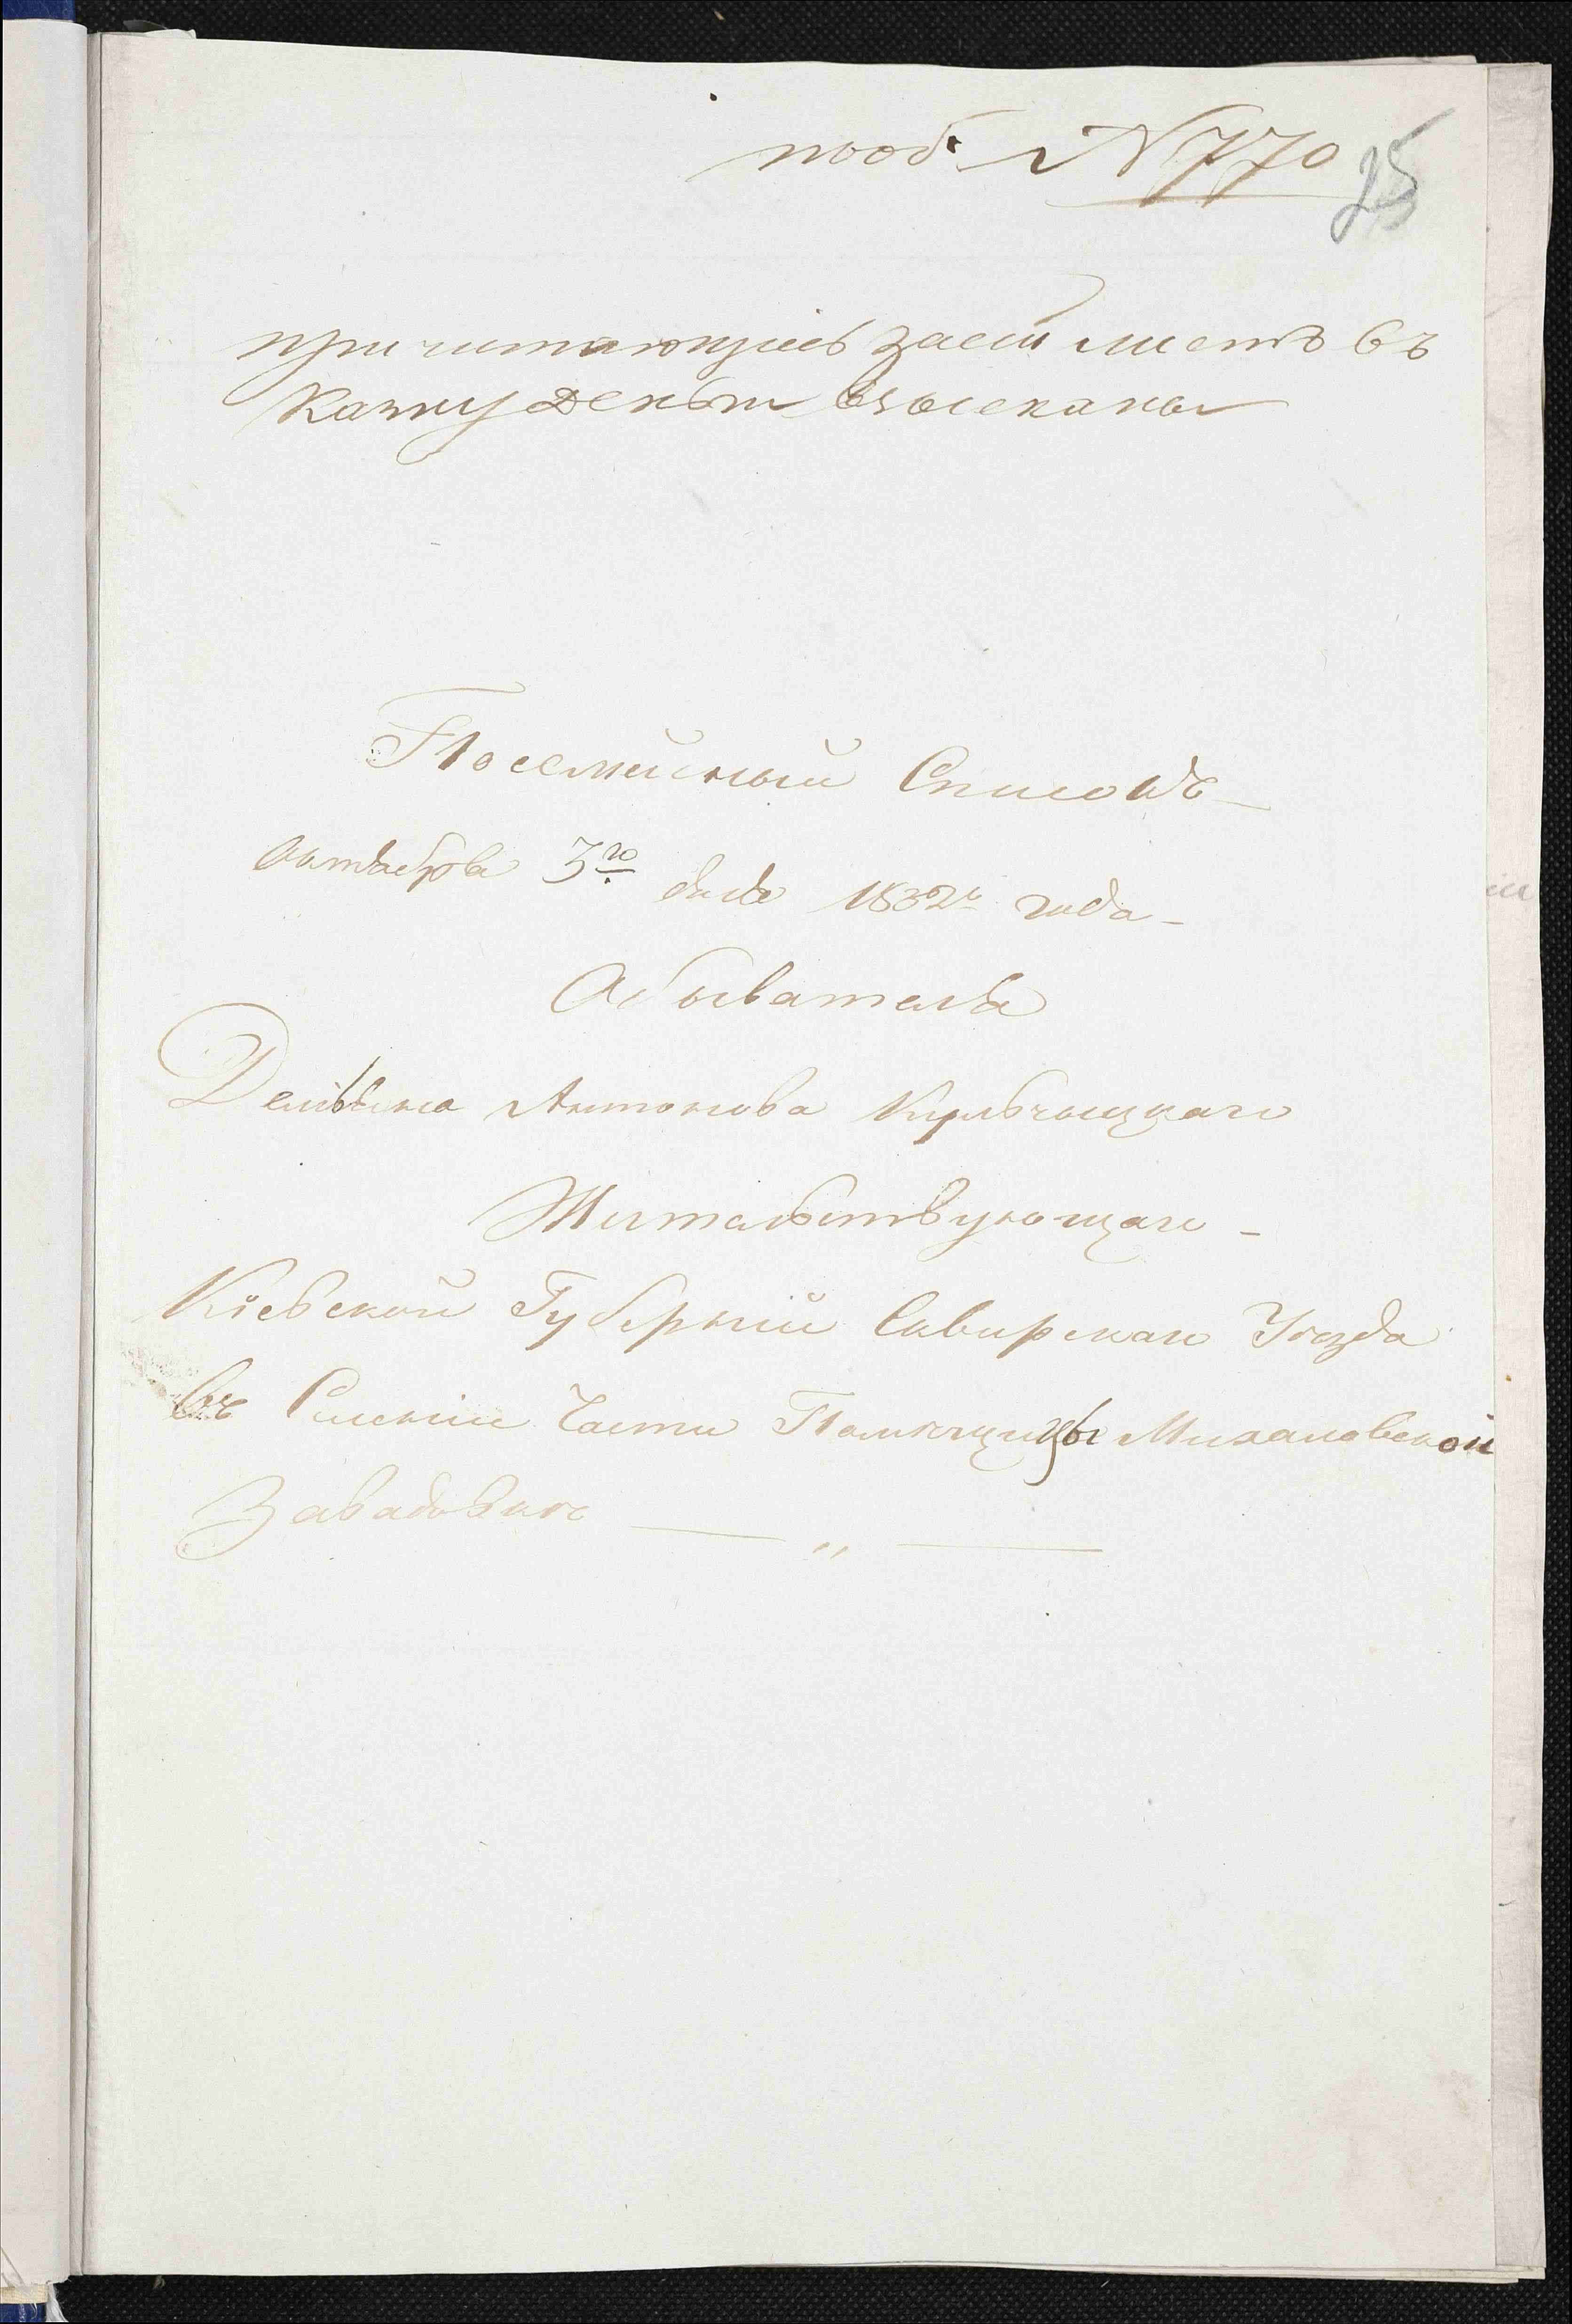 по об. № 770
25
причитающіесь за сей листъ въ
казну деньги взысканы
Посемейный Списокъ
октября 3го дня 1832го года
Обывателя
Антонова Кульчицкаго
Жительствующаго
Кіевской Губерніи Сквирскаго Уезда
въ Селеніи Части Помѣщицы Михаловской
Завадовкѣ